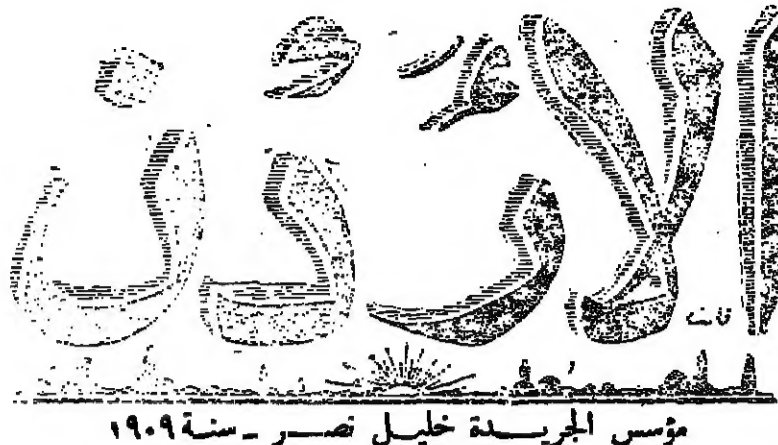 الاردن
مؤسس الجريـدة خليل نصـر ـ سنة ١٩٠٩